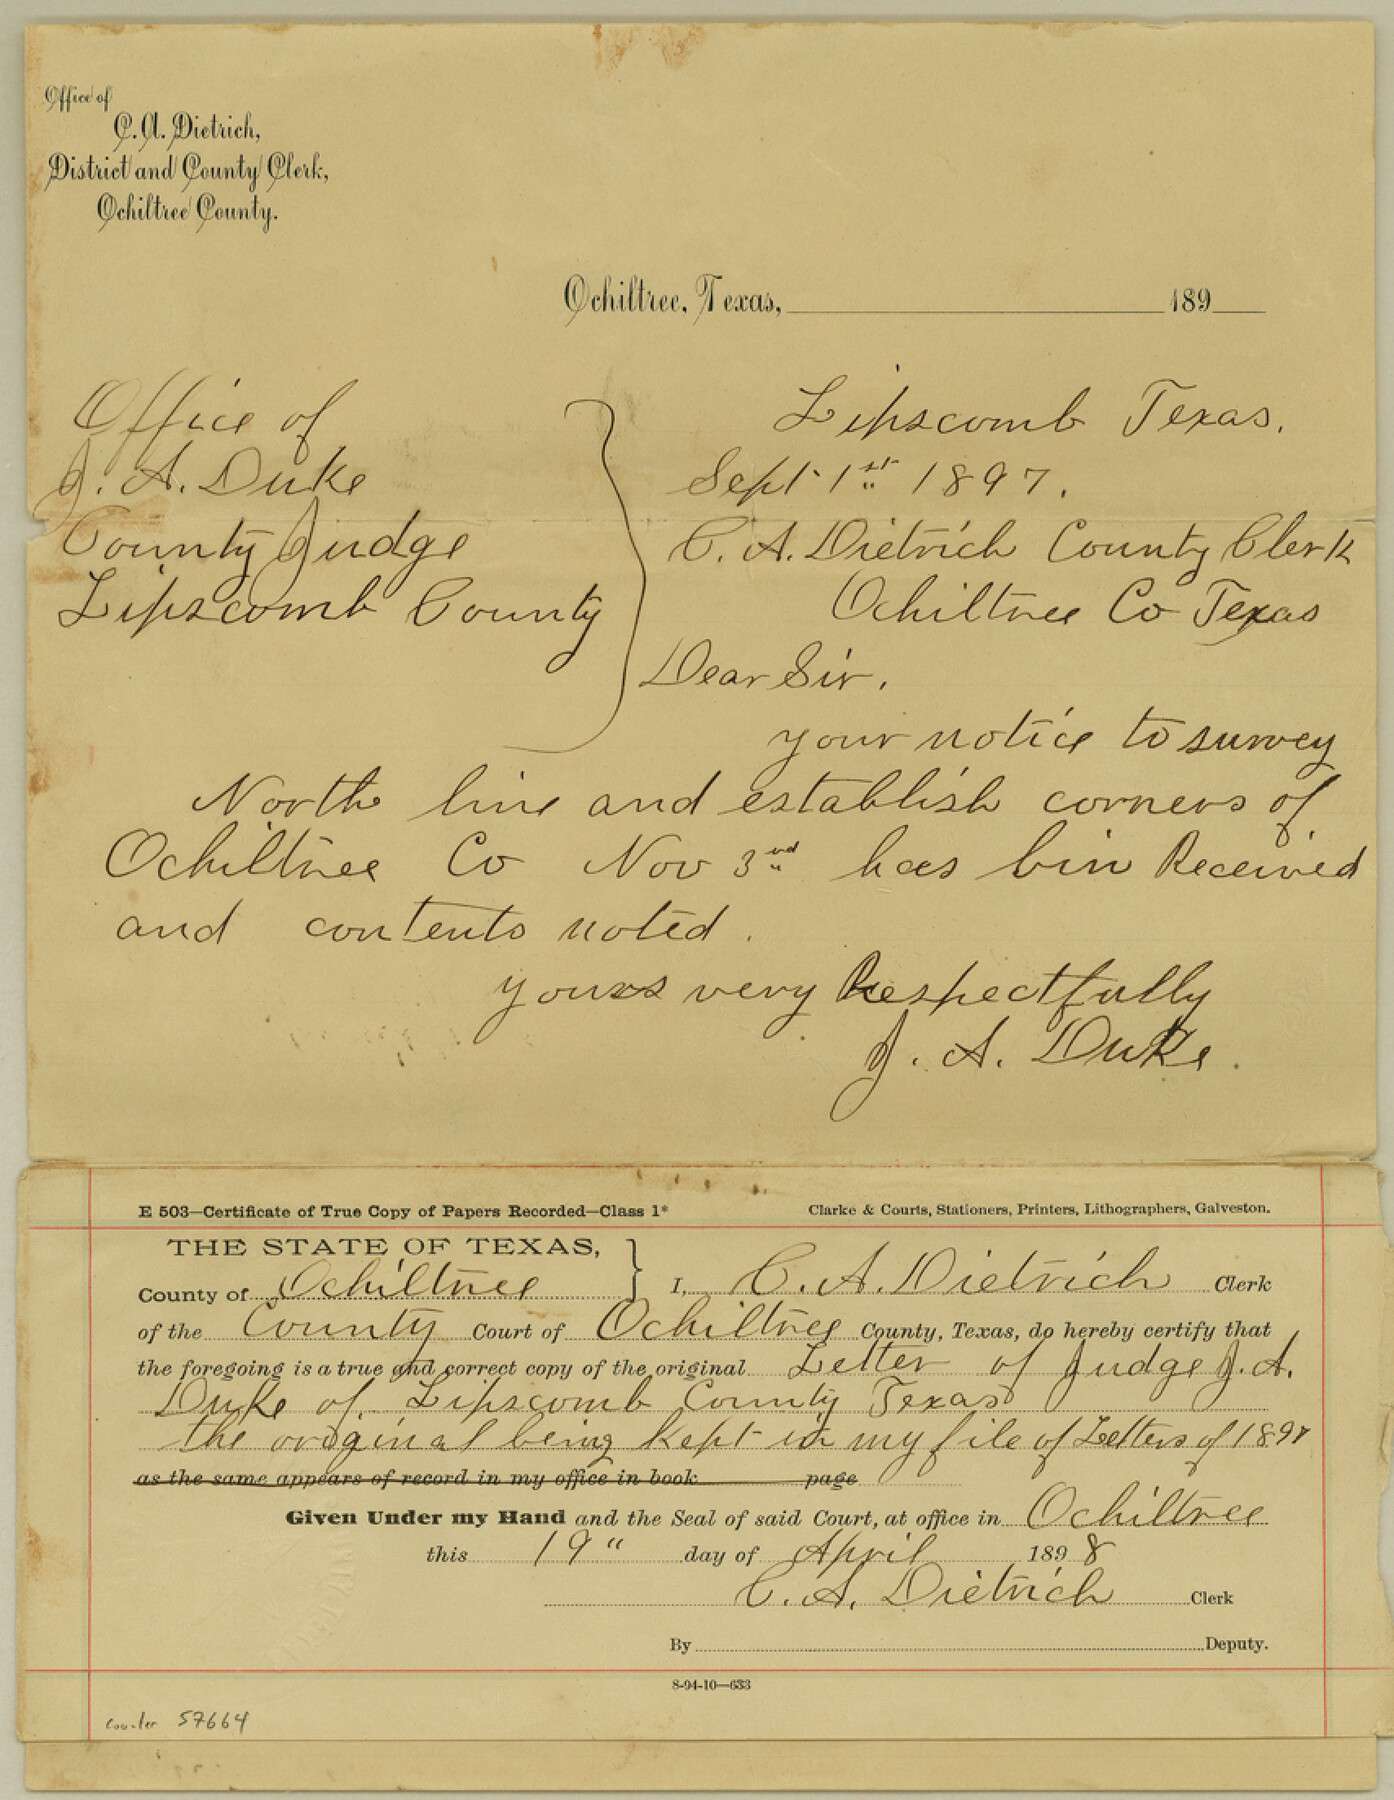 Office of
C. A. Dietrich,
District and County Clerk,
Ochiltree County.
Ochiltree, Texas, 189
Office of
J. A. Duke
County Judge
Lipscomb County
Lipscomb Texas.
Sept 1st 1897.
C. A. Dietrich County Clerk
Ochiltree Co Texas
Dear Sir.
your notice to survey
North line and establish corners of
Ochiltree Co Nov 3rd has bin Received
and contents noted.
yours very Respectfully
J. A. Duke.
E 503—Certificate of True Copy of Papers Recorded—Class 1* Clarke & Courts, Stationers, Printers, Lithographers, Galveston.
THE STATE OF TEXAS,
County of Ochiltree } I, C. A. Dietrich Clerk
of the County Court of Ochiltree County, Texas, do hereby certify that
the foregoing is a true and correct copy of the original Letter of Judge J. A.
Duke of Lipscomb County Texas
the original being kept in my file of Letters of 1897
as the same appears of record in my office in book page
Given Under my Hand and the Seal of said Court, at office in Ochiltree
this 19" day of April 1898
C. A. Dietrich Clerk
By Deputy.
8-94-10—633
Counter 57664